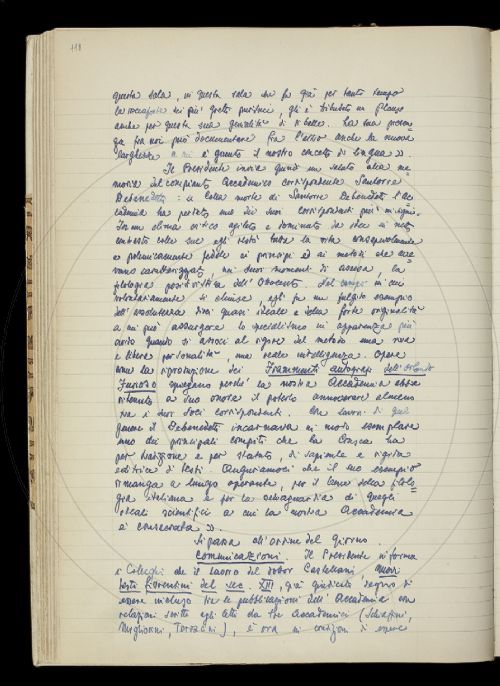 118
questa sala, in questa sala che fu già per tanto tempo
la roccaforte dei più gretti puristi, gli è tributato un plauso
anche per questa sua genialità di ribelle. La sua presen=
za fra noi può documentare fra l'altro anche la nuova
larghezza a cui è giunto il nostro concetto di lingua».
Il Presidente invia quindi un saluto alla me=
moria del compianto Accademico corrispondente Santorre
Debenedetti: « Colla morte di Santorre Debenedetti l'Ac=
cademia ha perduto uno dei suoi corrispondenti più insigni.
In un clima critico agitato e dominato da
egli restò tutta la vita consapevolmente
e polemicamente fedele ai principi ed ai metodi che ave=
vano caratterizzato, nei suoi momenti di ascesa, la
filologia positivistica dell'Ottocento. Nel campo in cui
volontariamente si chiuse, egli fu un fulgido esempio
dell'assolutezza direi quasi ideale e della forte originalità
a cui può assurgere lo specialismo in apparenza più
arido quando si associ al rigore del metodo una viva
e libera personalità, una reale intelligenza. Opere
come la riproduzione dei Frammenti autografi dell'Orlando
Furioso spiegano perché la nostra Accademia abbia
ritenuto a suo onore il poterlo annoverare almeno
tra i suoi soci corrispondenti. Con lavori di quel
genere il Debenedetti incarnava in modo esemplare
uno dei principali compiti che la Crusca ha
per tradizione e per statuto, di sapiente e rigida
editrice di testi. Auguriamoci che il suo esempio
rimanga a lungo operante, per il bene della filolo=
gia italiana e per la salvaguardia di quegli
ideali scientifici a cui la nostra Accademia
è consacrata ».
Si passa all'ordine del giorno.
Comunicazioni. Il Presidente informa
i Colleghi che il lavoro del dottor Castellani, Nuovi
testi fiorentini del sec. XIII, già giudicato degno di
essere incluso tra le pubblicazioni dell'Accademia con
relazioni scritte egli letti da tre Accademici (Schiaffini,
Migliorini, Terracini), è ora in condizioni di essere